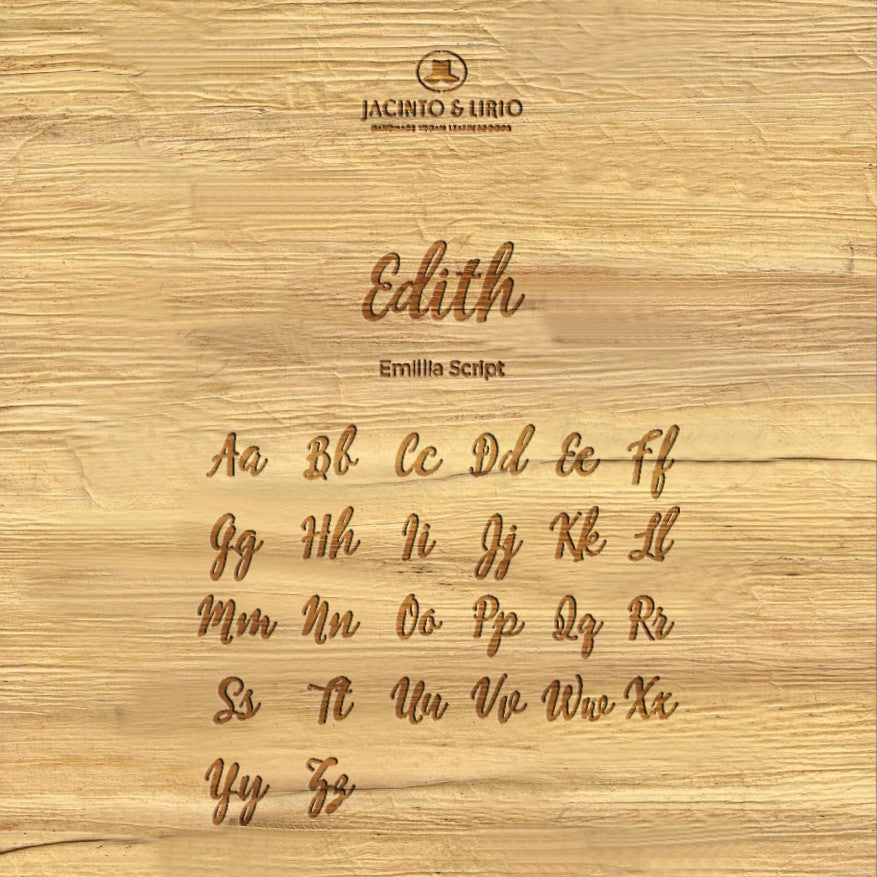 JACINTO & LIRIO
HANDMADE VEGAN LEATHERGOODS
Edith
Emillia Script
Aa Bb Cc Dd Ee Ff
Gg Hh Ii Jj Kk Ll
Mm Nn Oo Pp Qq Rr
Ss Tt Uu Vv Ww Xx
Yy Zz